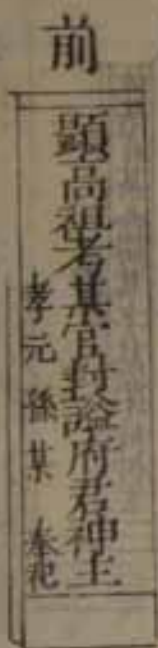 前
顯高祖考某官封諡府君神主
孝元孫某 奉祀